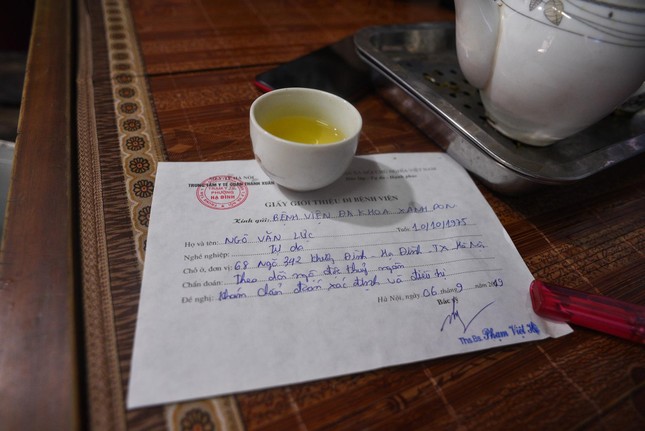 SỞ Y TẾ HÀ NỘI
TRUNG TÂM Y TẾ QUẬN THANH XUÂN
TRẠM Y TẾ
PHƯỜNG
HẠ ĐÌNH
GIẤY GIỚI THIỆU ĐI BỆNH VIỆN
Kính gửi: BỆNH VIỆN ĐA KHOA XANH PON
Họ và tên: NGÔ VĂN LỰC Tuổi 10/10/1975
Nghề nghiệp: Tự do
Chỗ ở, đơn vị: 68 Ngõ 342 Khương Đình - Hạ Đình - TX - Hà Nội
Chẩn đoán: Theo dõi ngộ độc thuỷ ngân
Đề nghị: Khám chẩn đoán xác định và điều trị
Hà Nội, ngày 06 tháng 9 năm 2019
Bác sỹ
Ths.Bs Phạm Việt